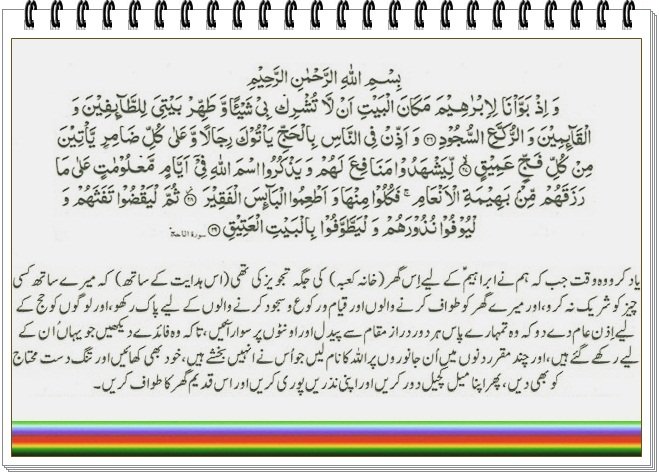 بِسْمِ اللهِ الرَّحْمٰنِ الرَّحِيْمِ
وَ اِذْ بَوَّاْنَا لِاِبْرٰهِيْمَ مَكَانَ الْبَيْتِ اَنْ لَّا تُشْرِكْ بِيْ شَيْئًا وَّ طَهِّرْ بَيْتِيَ لِلطَّآىِٕفِيْنَ وَ
الْقَآىِٕمِيْنَ وَ الرُّكَّعِ السُّجُوْدِ ۝۲۶ وَ اَذِّنْ فِي النَّاسِ بِالْحَجِّ يَاْتُوْكَ رِجَالًا وَّ عَلٰى كُلِّ ضَامِرٍ يَّاْتِيْنَ
مِنْ كُلِّ فَجٍّ عَمِيْقٍ ۝۲۷ لِّيَشْهَدُوْا مَنَافِعَ لَهُمْ وَ يَذْكُرُوا اسْمَ اللهِ فِيْۤ اَيَّامٍ مَّعْلُوْمٰتٍ عَلٰى مَا
رَزَقَهُمْ مِّنْۢ بَهِيْمَةِ الْاَنْعَامِ ۚ فَكُلُوْا مِنْهَا وَ اَطْعِمُوا الْبَآىِٕسَ الْفَقِيْرَ ۝۲۸ ثُمَّ لْيَقْضُوْا تَفَثَهُمْ وَ
لْيُوْفُوْا نُذُوْرَهُمْ وَ لْيَطَّوَّفُوْا بِالْبَيْتِ الْعَتِيْقِ ۝۲۹ سورۃ الحج
یاد کرو وہ وقت جب کہ ہم نے ابراہیمؑ کے لیے اِس گھر (خانہ کعبہ) کی جگہ تجویز کی تھی (اس ہدایت کے ساتھ) کہ میرے ساتھ کسی
چیز کو شریک نہ کرو، اور میرے گھر کو طواف کرنے والوں اور قیام و رکوع و سجود کرنے والوں کے لیے پاک رکھو، اور لوگوں کو حج کے
لیے اِذن عام دے دو کہ وہ تمہارے پاس ہر دور دراز مقام سے پیدل اور اونٹوں پر سوار آئیں، تاکہ وہ فائدے دیکھیں جو یہاں اُن کے
لیے رکھے گئے ہیں، اور چند مقرر دنوں میں اُن جانوروں پر اللہ کا نام لیں جو اُس نے انہیں بخشے ہیں، خود بھی کھائیں اور تنگ دست محتاج
کو بھی دیں، پھر اپنا میل کچیل دور کریں اور اپنی نذریں پوری کریں اور اس قدیم گھر کا طواف کریں۔